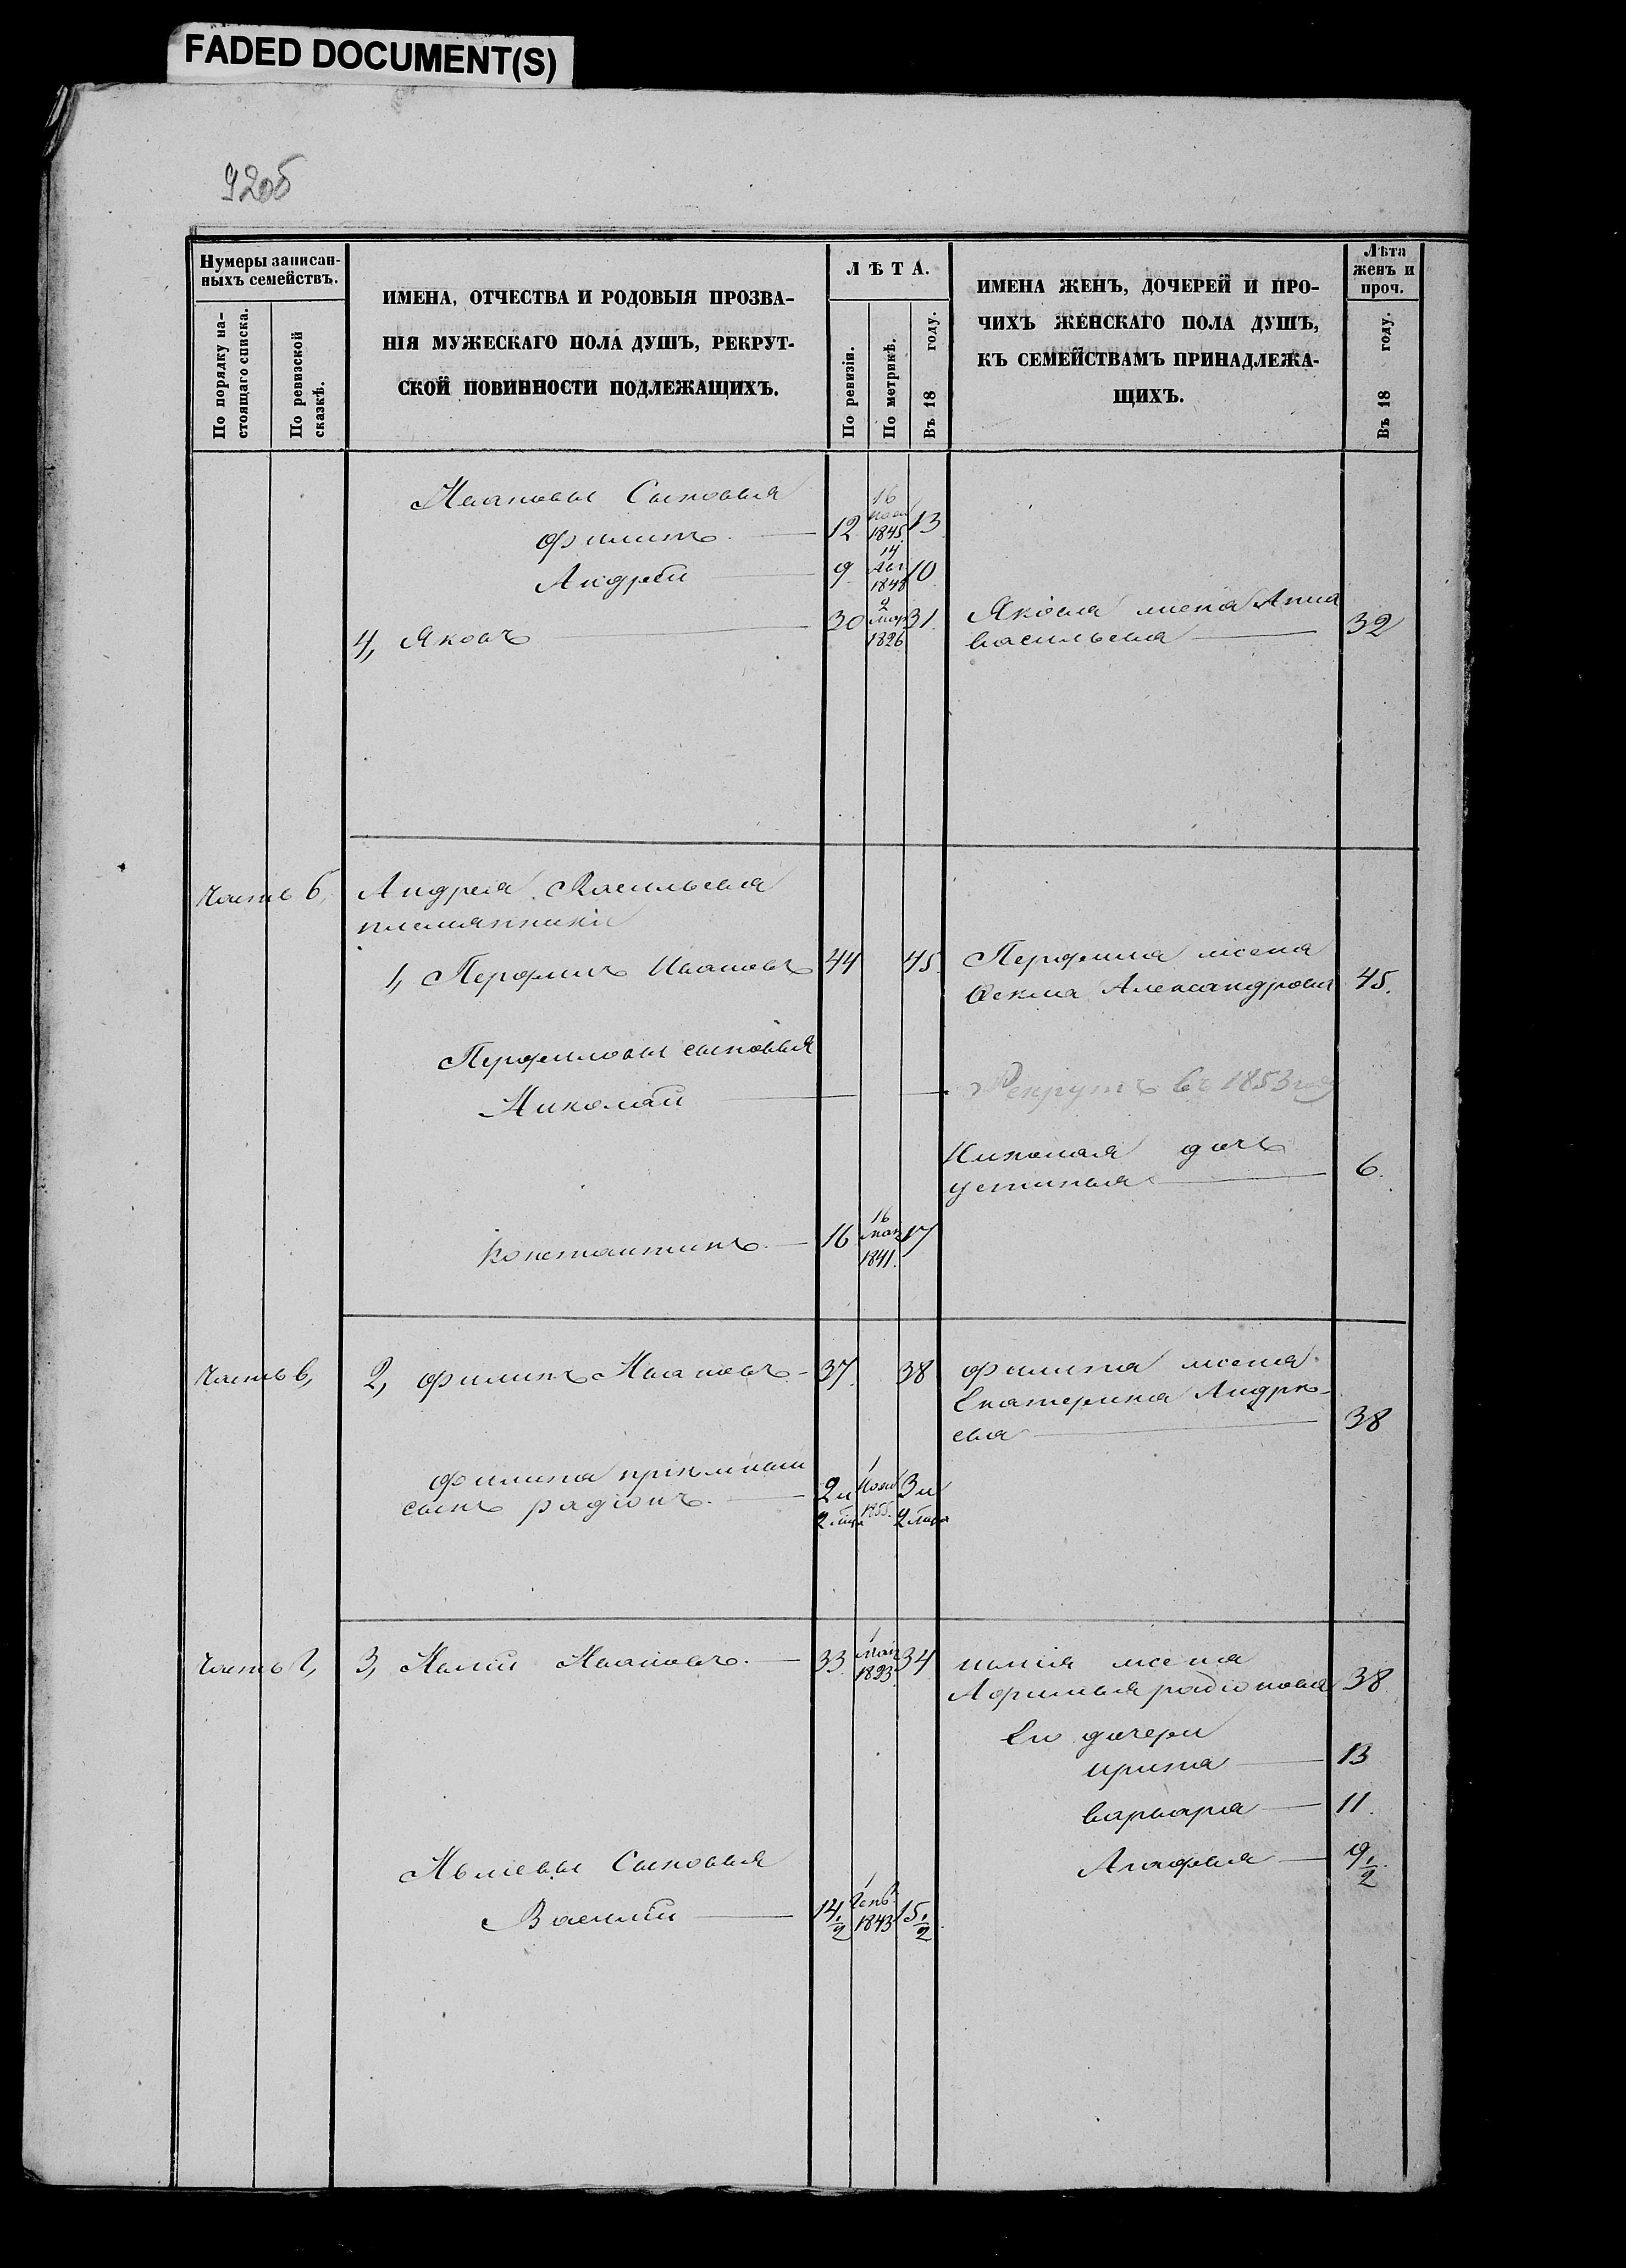 FADED DOCUMENT(S)
92об
Нумеры записан-
ныхъ семействъ.
По порядку на-
стоящаго списка.
По ревизской
сказкѣ.
ИМЕНА, ОТЧЕСТВА И РОДОВЫЯ ПРОЗВА-
НІЯ МУЖЕСКАГО ПОЛА ДУШЪ, РЕКРУТ-
СКОЙ ПОВИННОСТИ ПОДЛЕЖАЩИХЪ.
ЛѢТА.
По ревизіи.
По метрикѣ.
Въ 18 году.
ИМЕНА ЖЕНЪ, ДОЧЕРЕЙ И ПРО-
ЧИХЪ ЖЕНСКАГО ПОЛА ДУШЪ,
КЪ СЕМЕЙСТВАМЪ ПРИНАДЛЕЖА-
ЩИХЪ.
Лѣта
женъ и
проч.
Въ 18 году.
Ивановы Сыновья
Филипъ 12 16 1845 13
Андрей 9 14 Авг 1848 10
4, Яковъ 30 2 мар 1826 31
Якова жена Анна
васильева 32
Часть б,
Андрея Васильева
племянники
1, Перфилъ Ивановъ 44 45
Перфила жена
Фекла Александрова 45.
Перфиловы сыновья
Николай
Рекрутъ въ 1853 году
Николая дочь
устинья 6.
Константинъ 16 16 мая 1841. 17
Часть в,
2, Филипъ Ивановъ 37. 38
Филипа жена
Екатерина Андре-
ева 38
Филипа пріемный
сынъ радіонъ. 2 и 1 Нояб 1855. 3 и
2 мца 2 мца
Часть г,
3, Илий Ивановъ. 33 1 мая 1823 34
илия жена
Афимья радіонова 38
Ево дочери
ирина 13
варвара 11.
Агафья 9 1/2.
Ильевы Сыновья
Василий 14 1/2 1 Генв. 1843 15 1/2